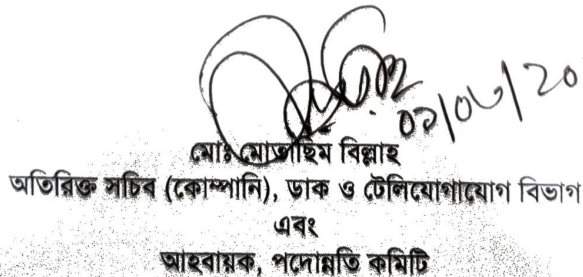 ০১/০৬/২০
মোঃ মোতাছিম বিল্লাহ
অতিরিক্ত সচিব (কোম্পানি), ডাক ও টেলিযোগাযোগ বিভাগ
এবং
আহবায়ক, পদোন্নতি কমিটি